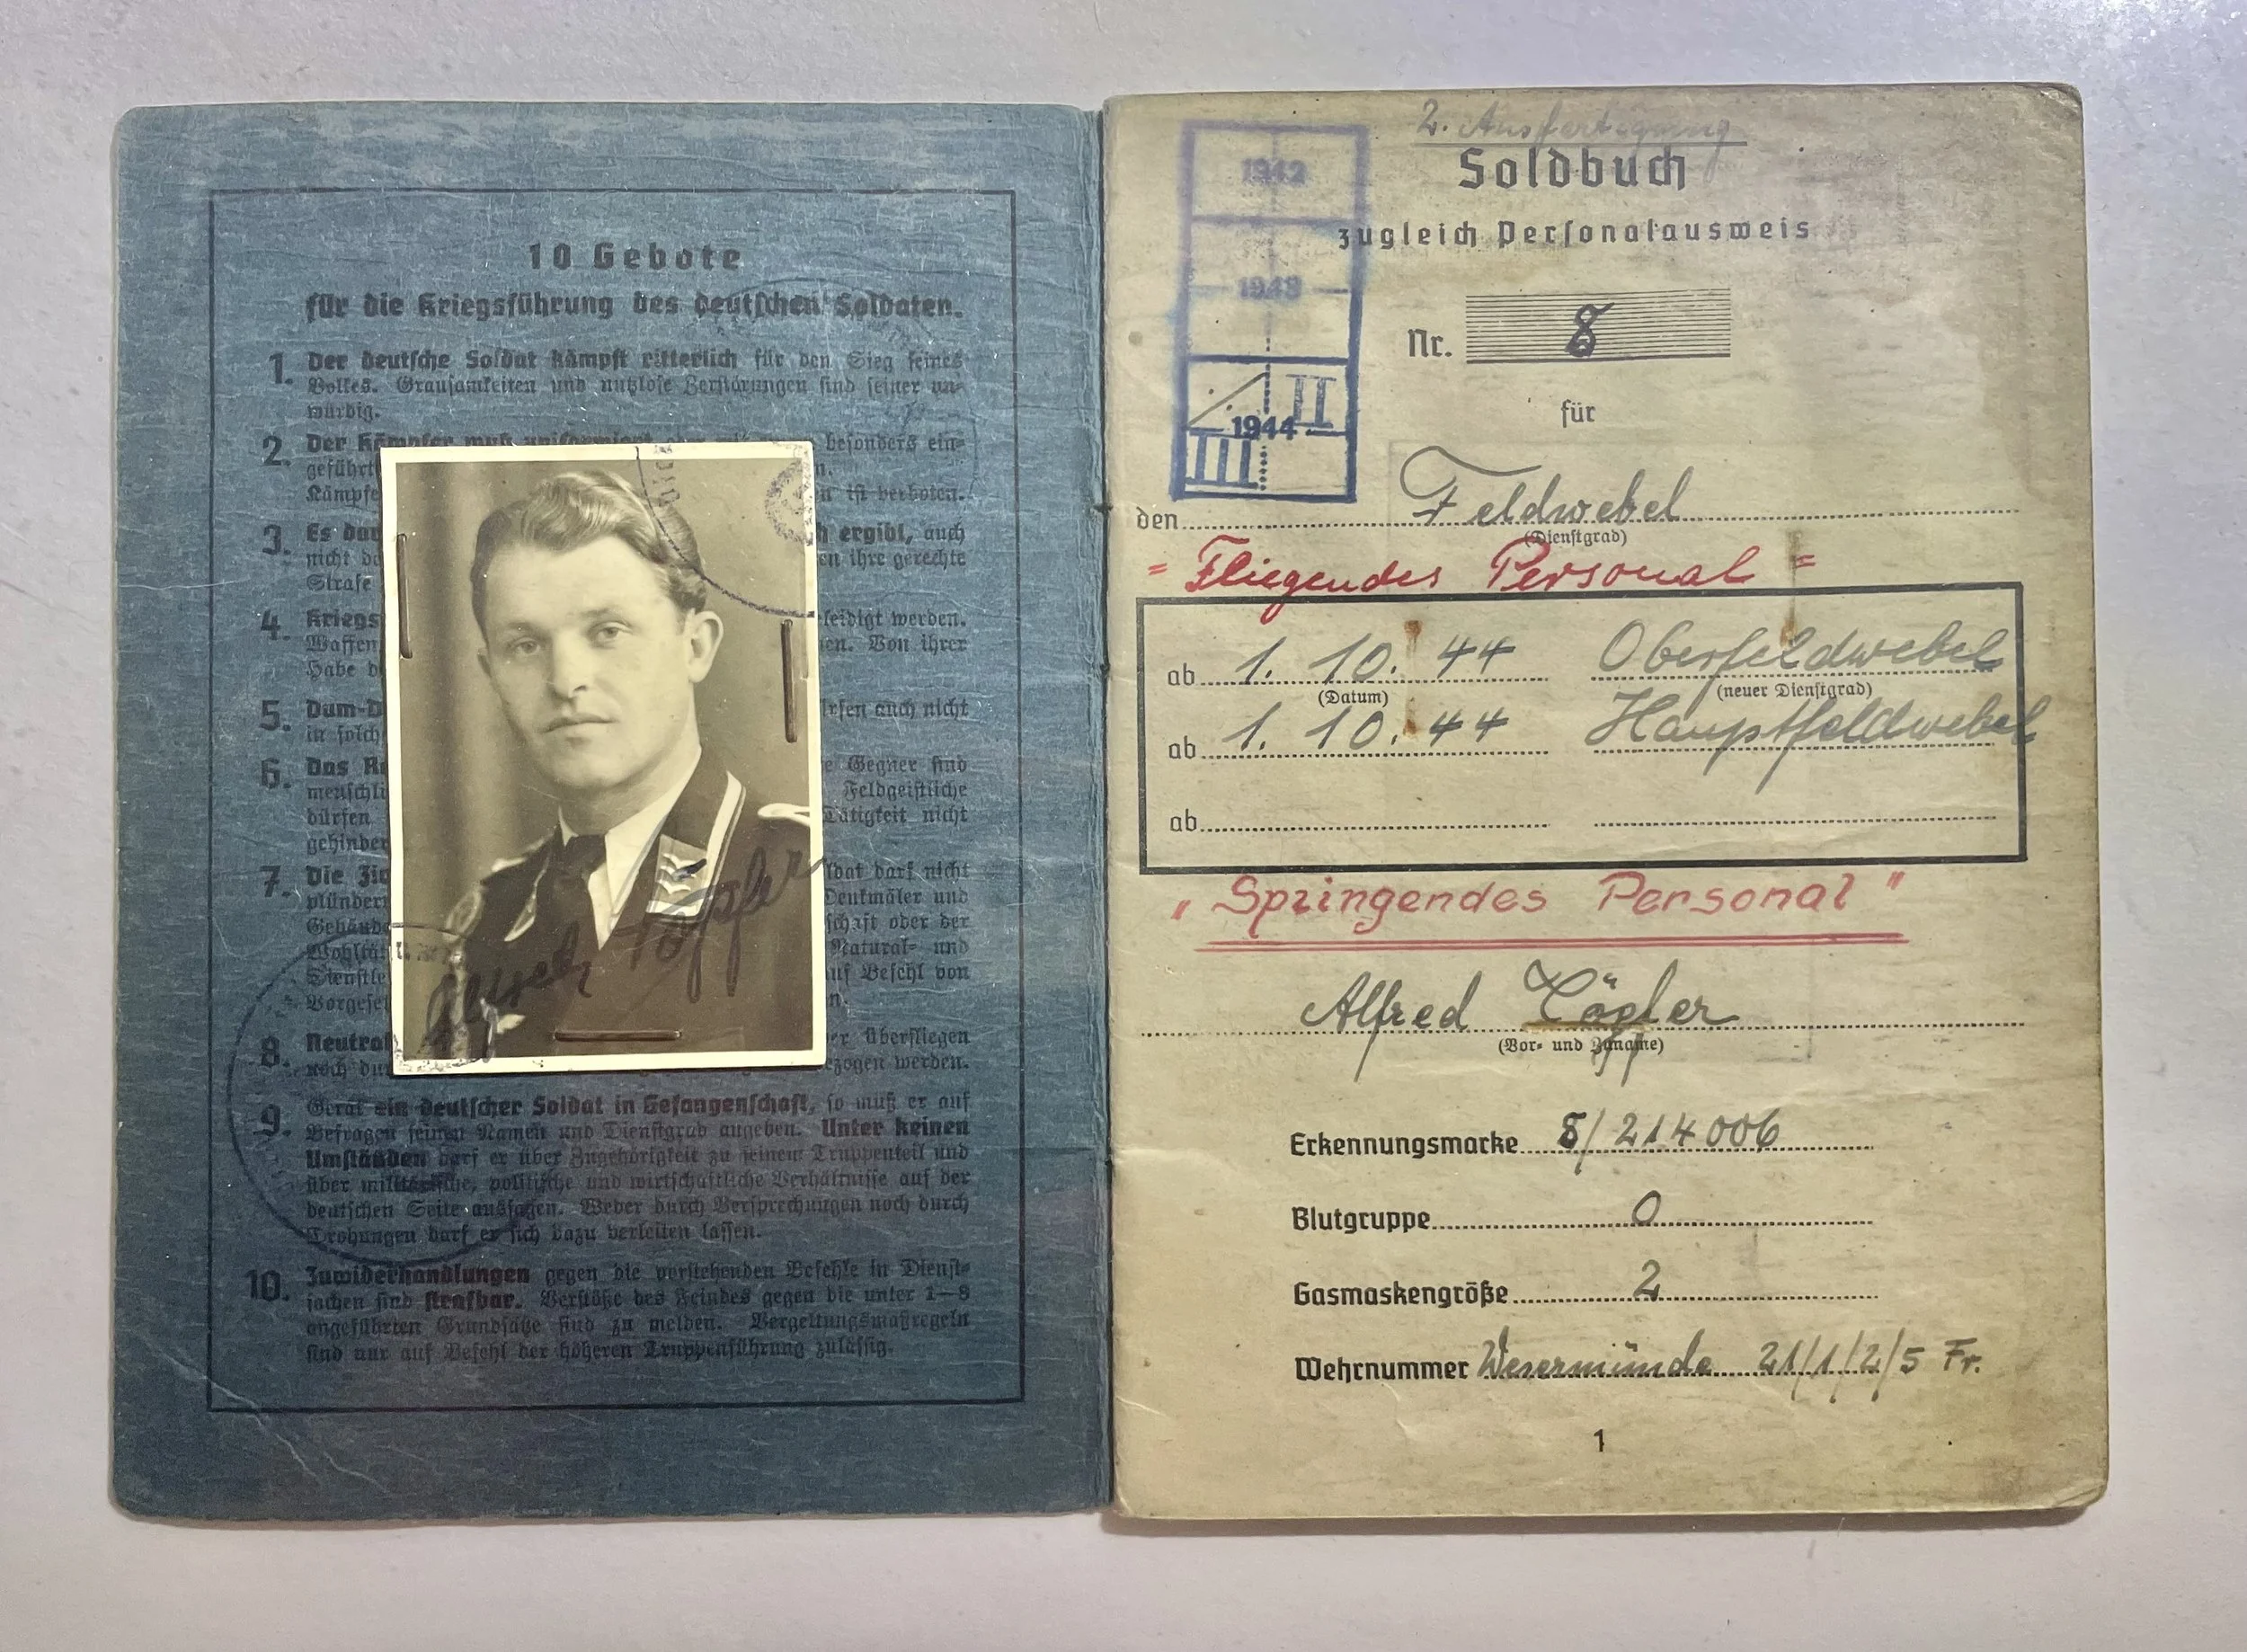 10 Gebote
für die Kriegsführung des deutschen Soldaten.
1. Der deutsche Soldat kämpft ritterlich für den Sieg seines
Volkes. Grausamkeiten und nutzlose Zerstörungen sind seiner un-
würdig.
2. Der Kämpfer muß uniformiert besonders ein-
geführt
Kämpfe ist verboten.
3. Es da ergibt, auch
nicht ihre gerechte
Strafe
4. Kriegs leidigt werden.
Waffen Von ihrer
Habe
5. Dum-D auch nicht
in solch
6. Das Gegner sind
menschli Feldgeistliche
dürfen Tätigkeit nicht
gehinder
7. Die Ziv ldat darf nicht
plünder Denkmäler und
Gebäude schaft oder der
Wohltät Natural- und
Dienstle auf Befehl von
Vorgese
8. Neutral überfliegen
noch du ezogen werden.
9. Gerät ein deutscher Soldat in Gefangenschaft, so muß er auf
Befragen seinen Namen und Dienstgrad angeben. Unter keinen
Umständen darf er über Zugehörigkeit zu seinem Truppenteil und
über militärische, politische und wirtschaftliche Verhältnisse auf der
deutschen Seite aussagen. Weder durch Versprechungen noch durch
Drohungen darf er sich dazu verleiten lassen.
10. Zuwiderhandlungen gegen die vorstehenden Befehle in Dienst-
sachen sind strafbar. Verstöße des Feindes gegen die unter 1–8
angeführten Grundsätze sind zu melden. Vergeltungsmaßregeln
sind nur auf Befehl der höheren Truppenführung zulässig.
Alfred Töpfer
2. Ausfertigung
Soldbuch
zugleich Personalausweis
1942
1943
1944
II
III
Nr. 8
für
den Feldwebel
(Dienstgrad)
"Fliegendes Personal"
ab 1. 10. 44 Oberfeldwebel
(Datum) (neuer Dienstgrad)
ab 1. 10. 44 Hauptfeldwebel
ab
"Springendes Personal"
Alfred Töpfer
(Vor- und Zuname)
Erkennungsmarke 8/214006
Blutgruppe 0
Gasmaskengröße 2
Wehrnummer Wesermünde 21/1/2/5 Fr.
1